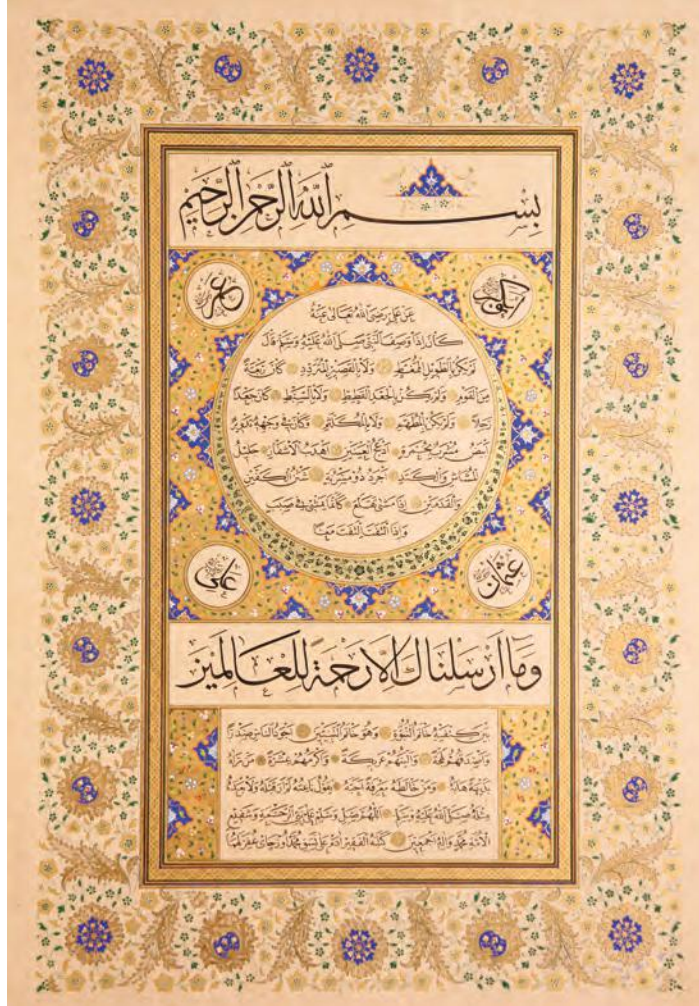 بسم الله الرحمن الرحيم
أبو بكر
عمر
عن علي رضي الله تعالى عنه
كان إذا وصف النبي صلى الله عليه وسلم قال
لم يكن بالطويل الممغط ولا بالقصير المتردد كان ربعة
من القوم ولم يكن بالجعد القطط ولا بالسبط كان جعدا
رجلا ولم يكن بالمطهم ولا بالمكلثم وكان في وجهه تدوير
أبيض مشرب بحمرة أدعج العينين أهدب الأشفار جليل
المشاش والكتد أجرد ذو مسربة شثن الكفين
والقدمين إذا مشى تقلع كأنما يمشي في صبب
وإذا التفت التفت معا
عثمان
علي
وما أرسلناك إلا رحمة للعالمين
بين كتفيه خاتم النبوة وهو خاتم النبيين أجود الناس صدرا
وأصدقهم لهجة وألينهم عريكة وأكرمهم عشرة من رآه
بديهة هابه ومن خالطه معرفة أحبه يقول ناعته لم أر قبله ولا بعده
مثله صلى الله عليه وسلم اللهم صل وسلم على نبي الرحمة وشفيع
الأمة محمد وآله أجمعين كتبه الفقير